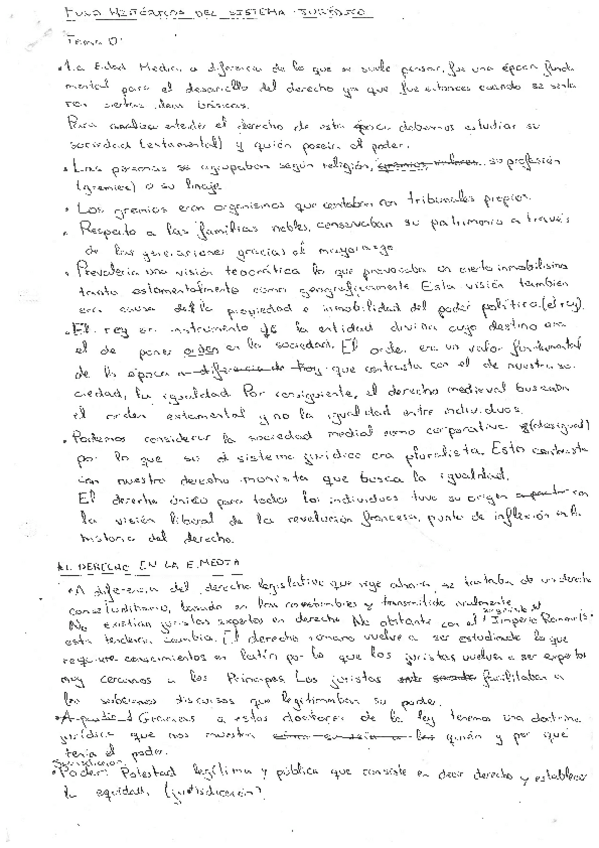 FUND HISTÓRICOS DEL SISTEMA JURÍDICO
Tema 0:
• La Edad Media, a diferencia de lo que se suele pensar, fue una época funda
mental para el desarrollo del derecho ya que fue entonces cuando se senta
ron ciertas ideas básicas.
Para analizar entender el derecho de esta época debemos estudiar su
sociedad (estamental) y quién poseía el poder.
• Las personas se agrupaban según religión, su profesión
(gremios) o su linaje.
• Los gremios eran organismos que contaban con tribunales propios.
• Respecto a las familias nobles, conservaban su patrimonio a través
de las generaciones gracias al mayorazgo
• Prevalecía una visión teocrática lo que provocaba un cierto inmobilismo
tanto estamentalmente como geográficamente. Esta visión también
era causa de la propiedad e inmobilidad del poder político. (el rey).
• El rey era instrumento de la entidad divina cuyo destino era
el de poner orden en la sociedad. El orden era un valor fundamental
de la época a diferencia de hoy que contrasta con el de nuestra so
ciedad, la igualdad. Por consiguiente, el derecho medieval buscaba
el orden estamental y no la igualdad entre individuos.
• Podemos considerar la sociedad medial como corporativa (desigual)
por lo que su sistema jurídico era pluralista. Esto contrasta
con nuestro derecho monista que busca la igualdad.
El derecho único para todos los individuos tuvo su origen a partir con
la visión liberal de la revolución francesa, punto de inflexión en la
historia del derecho.
EL DERECHO EN LA E.MEDIA
• A diferencia del derecho legislativo que rige ahora, se trataba de un derecho
consuetudinario, basado en las costumbres y transmitido oralmente.
No existían juristas expertos en derecho. No obstante con el "Imperio Romano"
esta tendencia cambia. El derecho romano vuelve a ser estudiado lo que
requiere conocimientos en latín por lo que los juristas vuelven a ser expertos
muy cercanos a los Príncipes. Los juristas facilitaban a
los soberanos discursos que legitimaban su poder.
• A partir d Gracias a estos doctores de la ley tenemos una doctrina
jurídica que nos muestra quién y por qué
tenía el poder.
Jurisdicción
• Poder: Potestad legítima y pública que consiste en decir derecho y establecer
la equidad. (jurisdicción?